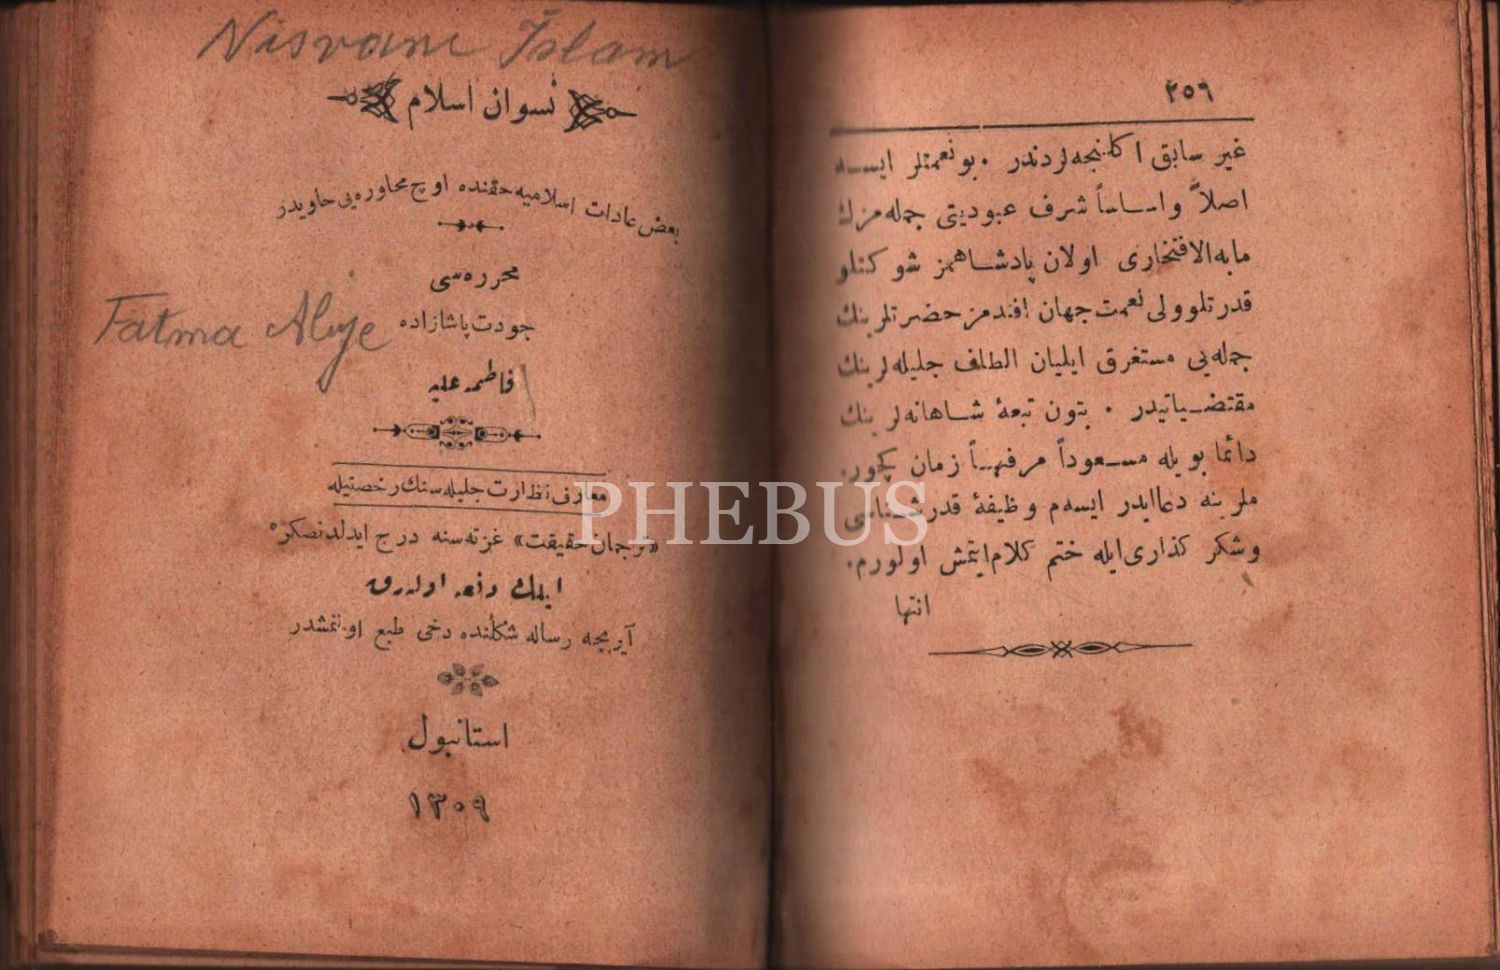 Nisvanı İslam
نسوان اسلام
بعض عادات اسلامیه حقنده اوچ محاوره‌یی حاویدر
محرره‌سی
جودت پاشازاده
Fatma Aliye
فاطمه علیه
معارف نظارت جلیله‌سنك رخصتیله
«ترجمان حقیقت» غزته‌سنه درج ایدلدنصکره
ایلك دفعه اوله‌رق
آیریجه رساله شکلنده دخی طبع اولنمشدر
استانبول
١٣٠٩
٢٥٦
غیر سابق اکلنجه‌لردندر . بو نعمتلر ایسه
اصلاً واساساً شرف عبودیتی جمله‌مزك
مابه‌الافتخاری اولان پادشاهمز شوکتلو
قدرتلو ولی نعمت جهان افندمز حضرتلرینك
جمله‌یی مستغرق ایلیان الطاف جلیله‌لرینك
مقتضیاتیدر . بتون تبعهٔ شاهانه‌لرینك
دائما بویله مسعوداً مرفهاً زمان کچور.
ملرینه دعا ایدر ایسه‌م وظیفهٔ قدرشناسی
وشکر کذاری ایله ختم کلام ایتمش اولورم.
انتها
PHEBUS